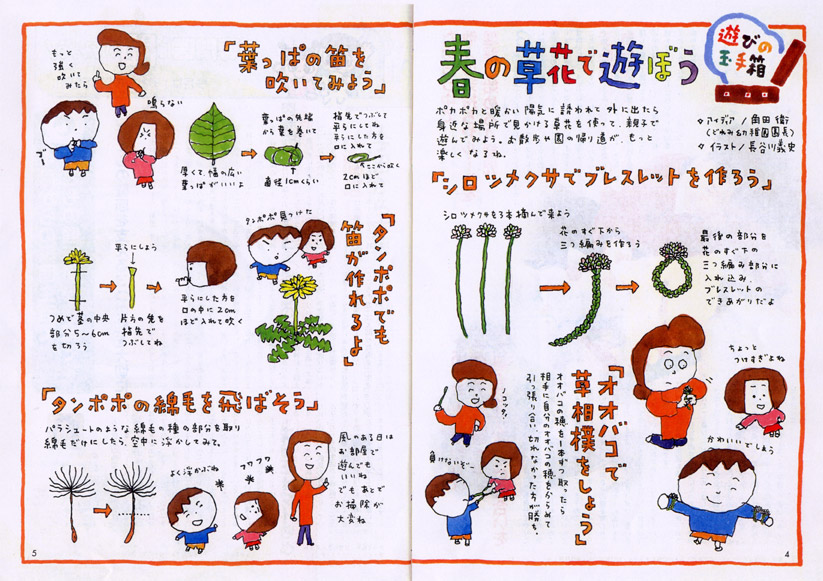 遊びの
玉手箱
春の草花で遊ぼう
ポカポカと暖かい陽気に誘われて外に出たら
身近な場所で見かける草花を使って、親子で
遊んでみよう。お散歩や園の帰り道が、もっと
楽しくなるね。
アイデア/角田 衛
(どれみ幼稚園園長)
イラスト/長谷川義史
「シロツメクサでブレスレットを作ろう」
シロツメクサを3本摘んで来よう
花のすぐ下から
三つ編みを作ろう
最後の部分を
花のすぐ下の
三つ編み部分に
入れ込み、
ブレスレットの
できあがりだよ
ちょっと
つけすぎよね
かわいいでしょう
「オオバコで
草相撲をしよう」
オオバコの穂を1本ずつ取ったら
相手に自分のオオバコの穂をからめて
引っ張り合い、切れなかった方が勝ち。
ノコッタ!
負けないぞ〜
4
「葉っぱの笛を
吹いてみよう」
もっと
強く
吹いて
みたら
鳴らない
厚くて、幅の広い
葉っぱがいいよ
葉っぱの先端
から葉を巻いて
直径1cmくらい
指先でつぶして
平らにしてね
平らにした方を
口に入れて
ここから吹く
2cmほど
口に入れて
「タンポポでも
笛が作れるよ」
タンポポ見つけた
つめで茎の中央
部分5〜6cm
を切ろう
平らにしよう
片方の先を
指先で
つぶしてね
平らにした方を
口の中に2cm
ほど入れて吹く
「タンポポの綿毛を飛ばそう」
パラシュートのような綿毛の種の部分を取り
綿毛だけにしたら、空中に浮かしてみて。
よく浮かぶね
フワフワ
風のある日は
お部屋で
遊んでも
いいね
でもあとで
お掃除が
大変ね
5